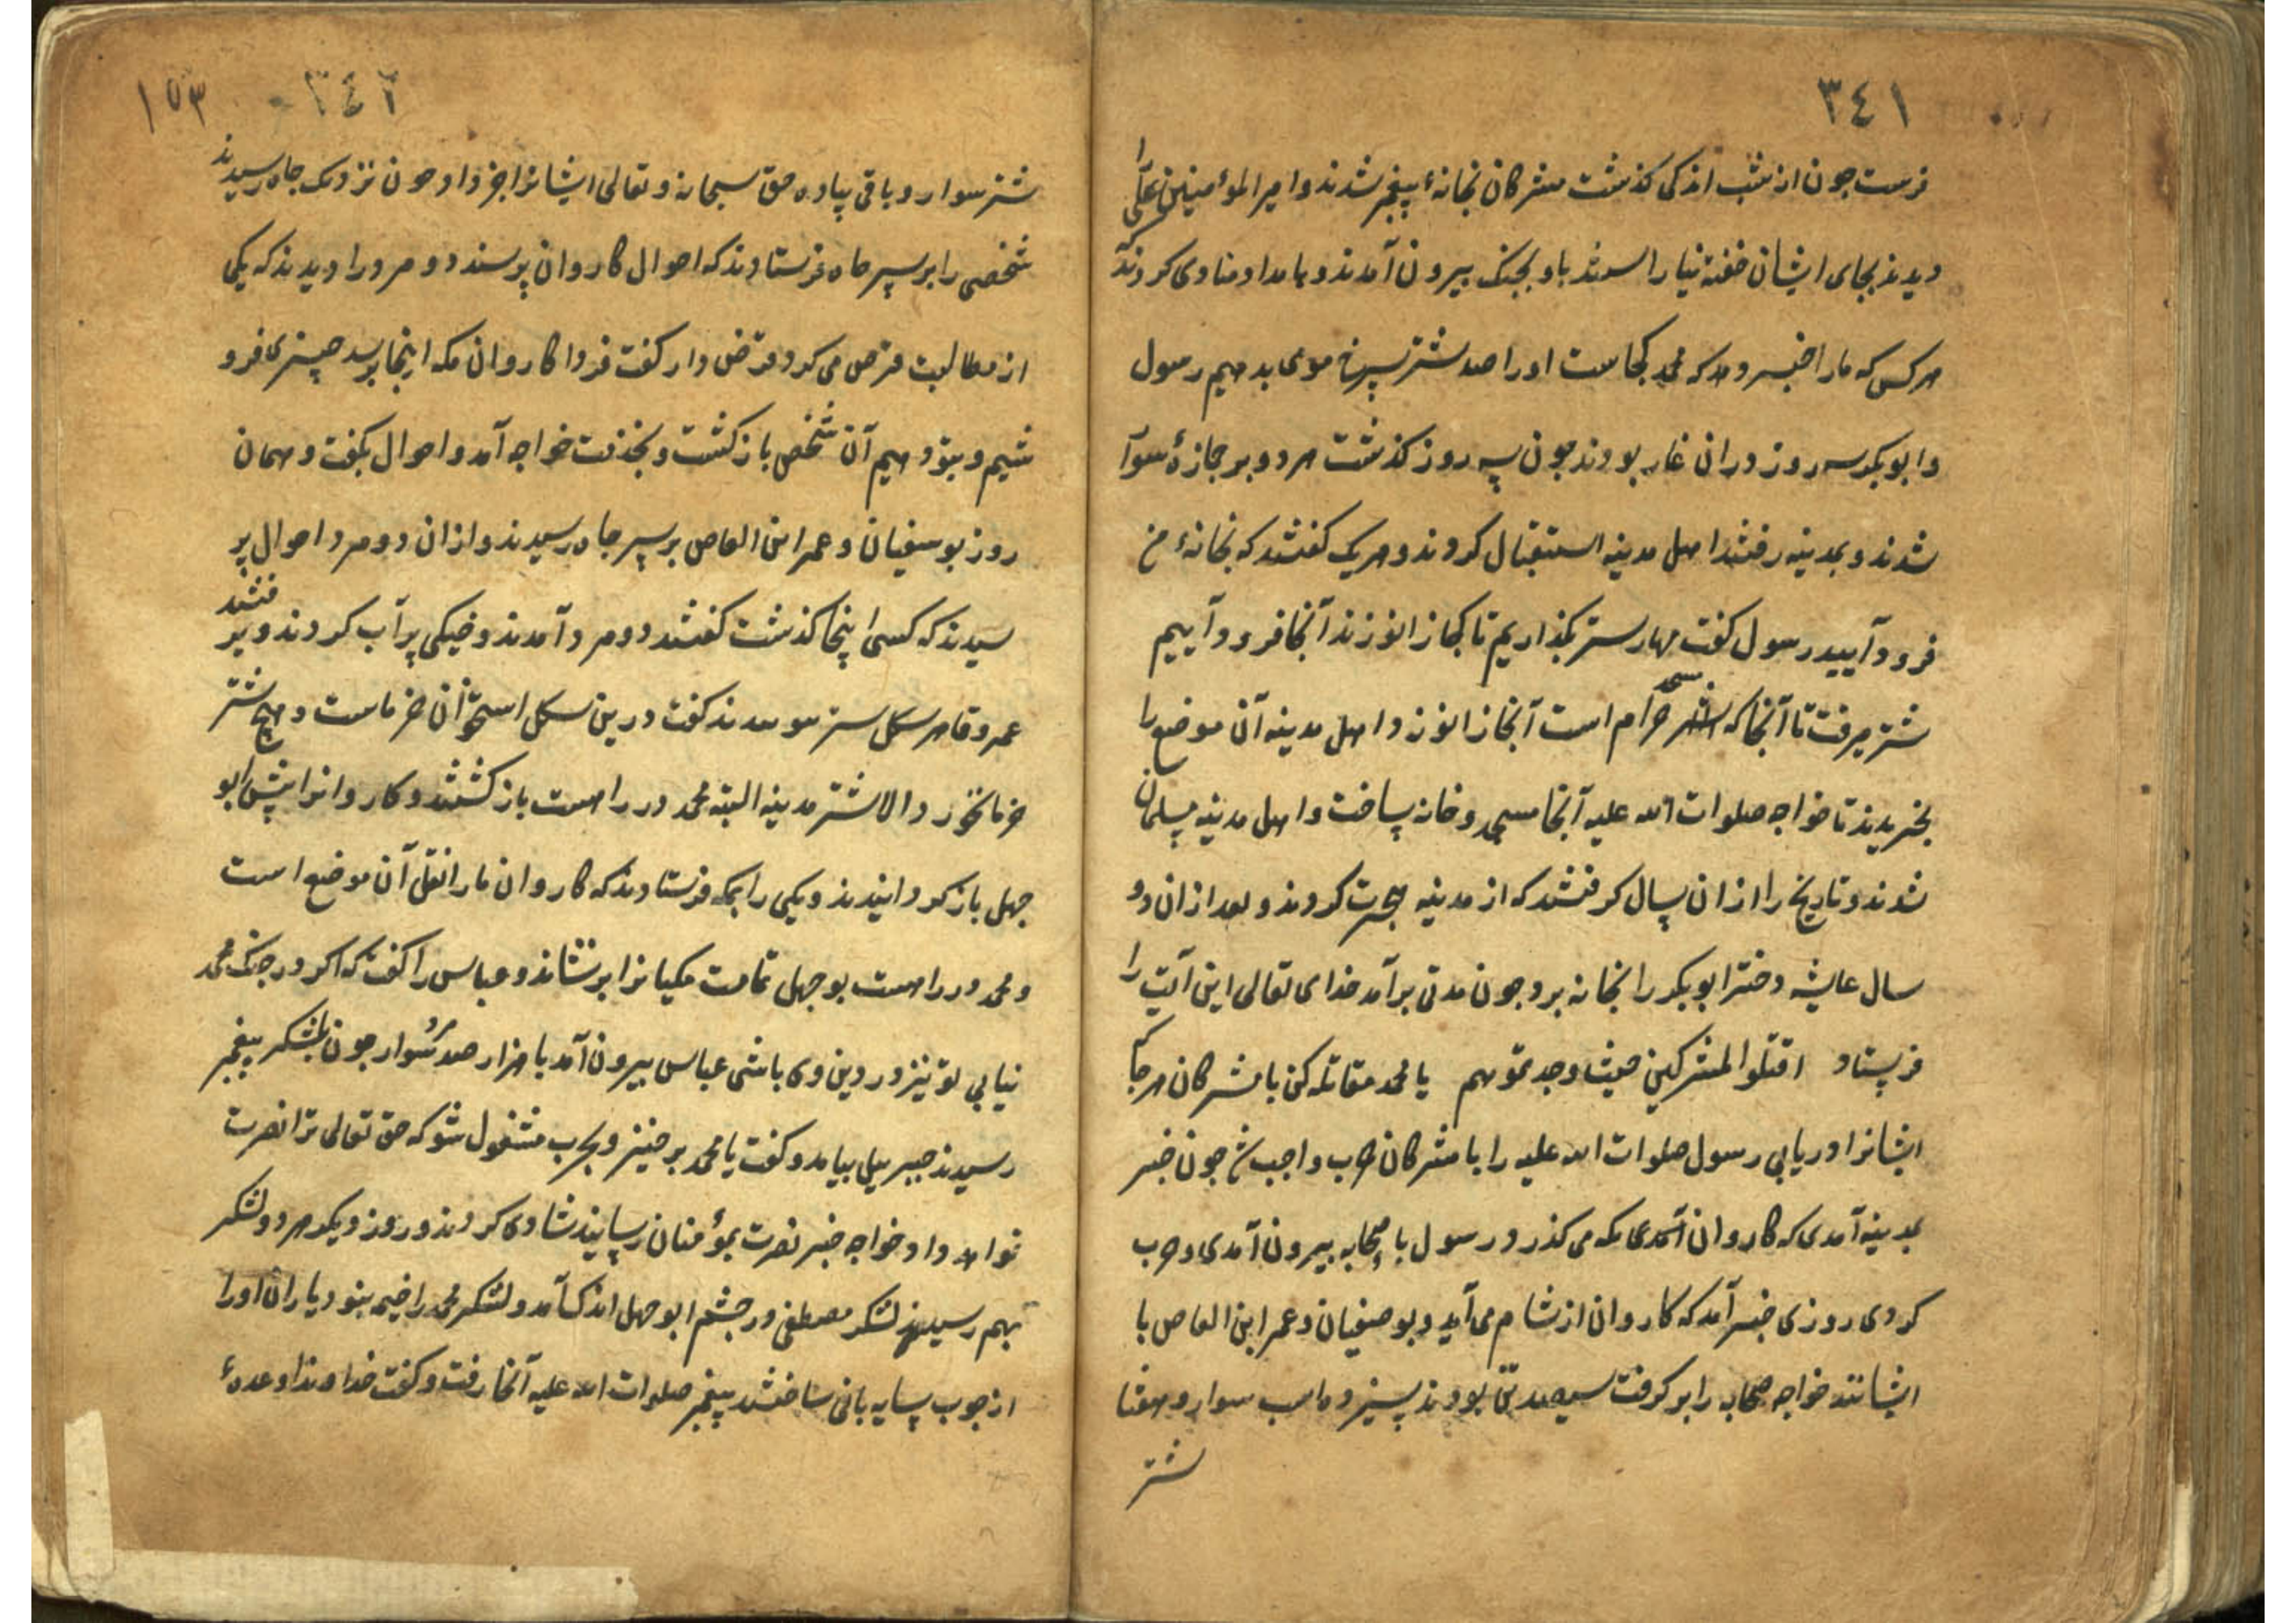 ٣٤١
فرست جون از شب اندکی کذشت مشرکان بخانهٔ پیغمبر شدند و امیر المؤمنین علی را
دیدند بجای ایشان خفته نیارستند باو بجنک بیرون آمدند و بامداد منادی کردند که
هر کس که ما را خبر دهد که محمد کجاست او را صد شتر سرخ موی بدهیم رسول
و ابوبکر سه روز در ان غار بودند جون سه روز کذشت هر دو بر جمازهٔ سوار
شدند و بمدینه رفتند اهل مدینه استقبال کردند و هر یک کفتند که بخانهٔ من
فرود آیید رسول کفت مهار شتر بکذاریم تا کجا زانو زند آنجا فرود آییم
شتر میرفت تا آنجا که مسجد حرام است آنجا زانو زد اهل مدینه آن موضع را
بخریدند تا خواجه صلوات الله علیه آنجا مسجد و خانه ساخت و اهل مدینه مسلمان
شدند و تاریخ را از ان سال کرفتند که از مدینه هجرت کردند و بعد از ان دو
سال عایشه دختر ابوبکر را بخانه برد جون مدتی برآمد خدای تعالی این آیت را
فرستاد اقتلوا المشرکین حیث وجدتموهم یا محمد مقاتله کن با مشرکان هر جا که
ایشانرا دریابی رسول صلوات الله علیه را با مشرکان حرب واجب شد جون خبر
بمدینه آمدی که کاروان مکه می کذرد رسول با صحابه بیرون آمدی و حرب
کردی روزی خبر آمد که کاروان از شام می آید و بوصفیان و عمر ابن العاص با
ایشانند خواجه صحابه را بر کرفت سیصد تن بودند سیزده اسب سوار و هفتاد
شتر
٣٤٢
١٥٣
شتر سوار و باقی پیاده حق سبحانه و تعالی ایشانرا خبر داد جون نزدیک جاه رسیدند
شخصی را بر سر جاه فرستادند که احوال کاروان پرسد دو مرد را دیدند که یکی
از مطالبت قرض می کرد و قرض دار کفت فردا کاروان مکه اینجا برسد جیزی فرو
شیم و بتو دهیم آن شخص باز کشت و بخدمت خواجه آمد و احوال بکفت و همان
روز بوسفیان و عمر ابن العاص بر سر جاه رسیدند و از ان دو مرد احوال پر
سیدند که کسی اینجا کذشت کفتند دو مرد آمدند و خیکی پر آب کردند و بر فتند
عمرو کفت درین استخوان خرماست و هیج شتر
خرما نخورد الا شتر مدینه البته محمد در راهست باز کشتند و کاروانرا پیش ابو
جهل باز کردانیدند و یکی را بمکه فرستادند که کاروان ما را نقل آن موضع است
و محمد در راهست بوجهل تمامت مکیانرا برنشاند و عباس را کفت که اکر در جنک محمد
نیایی تو نیز در دین وی باشی عباس بیرون آمد با هزار صد مرد سوار جون بلشکر پیغمبر
رسیدند جبرییل بیامد و کفت یا محمد بر خیز و بحرب مشغول شو که حق تعالی ترا نصرت
خواهد داد خواجه خبر نصرت بمؤمنان رسانید شادی کردند و روز دیکر هر دو لشکر
بهم رسیدند لشکر مصطفی در جشم ابوجهل اندک آمد و لشکر محمد را خیمه نبود یاران او را
از جوب سایه بانی ساختند پیغمبر صلوات الله علیه آنجا رفت و کفت خداوندا وعدهٔ